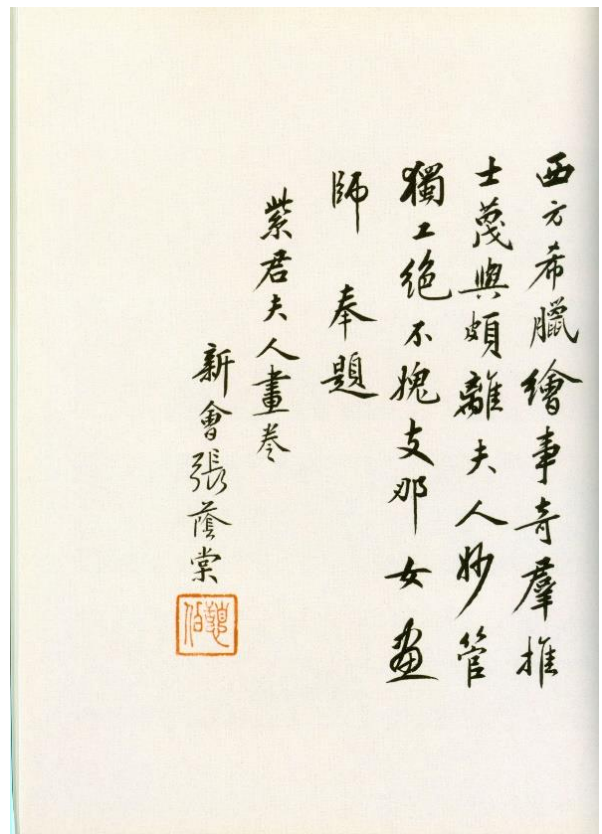 西方希臘繪事奇羣推
士蔑與頗離夫人妙管
獨工絕不愧支那女畫
師 奉題
紫君夫人畫卷
新會張蔭棠